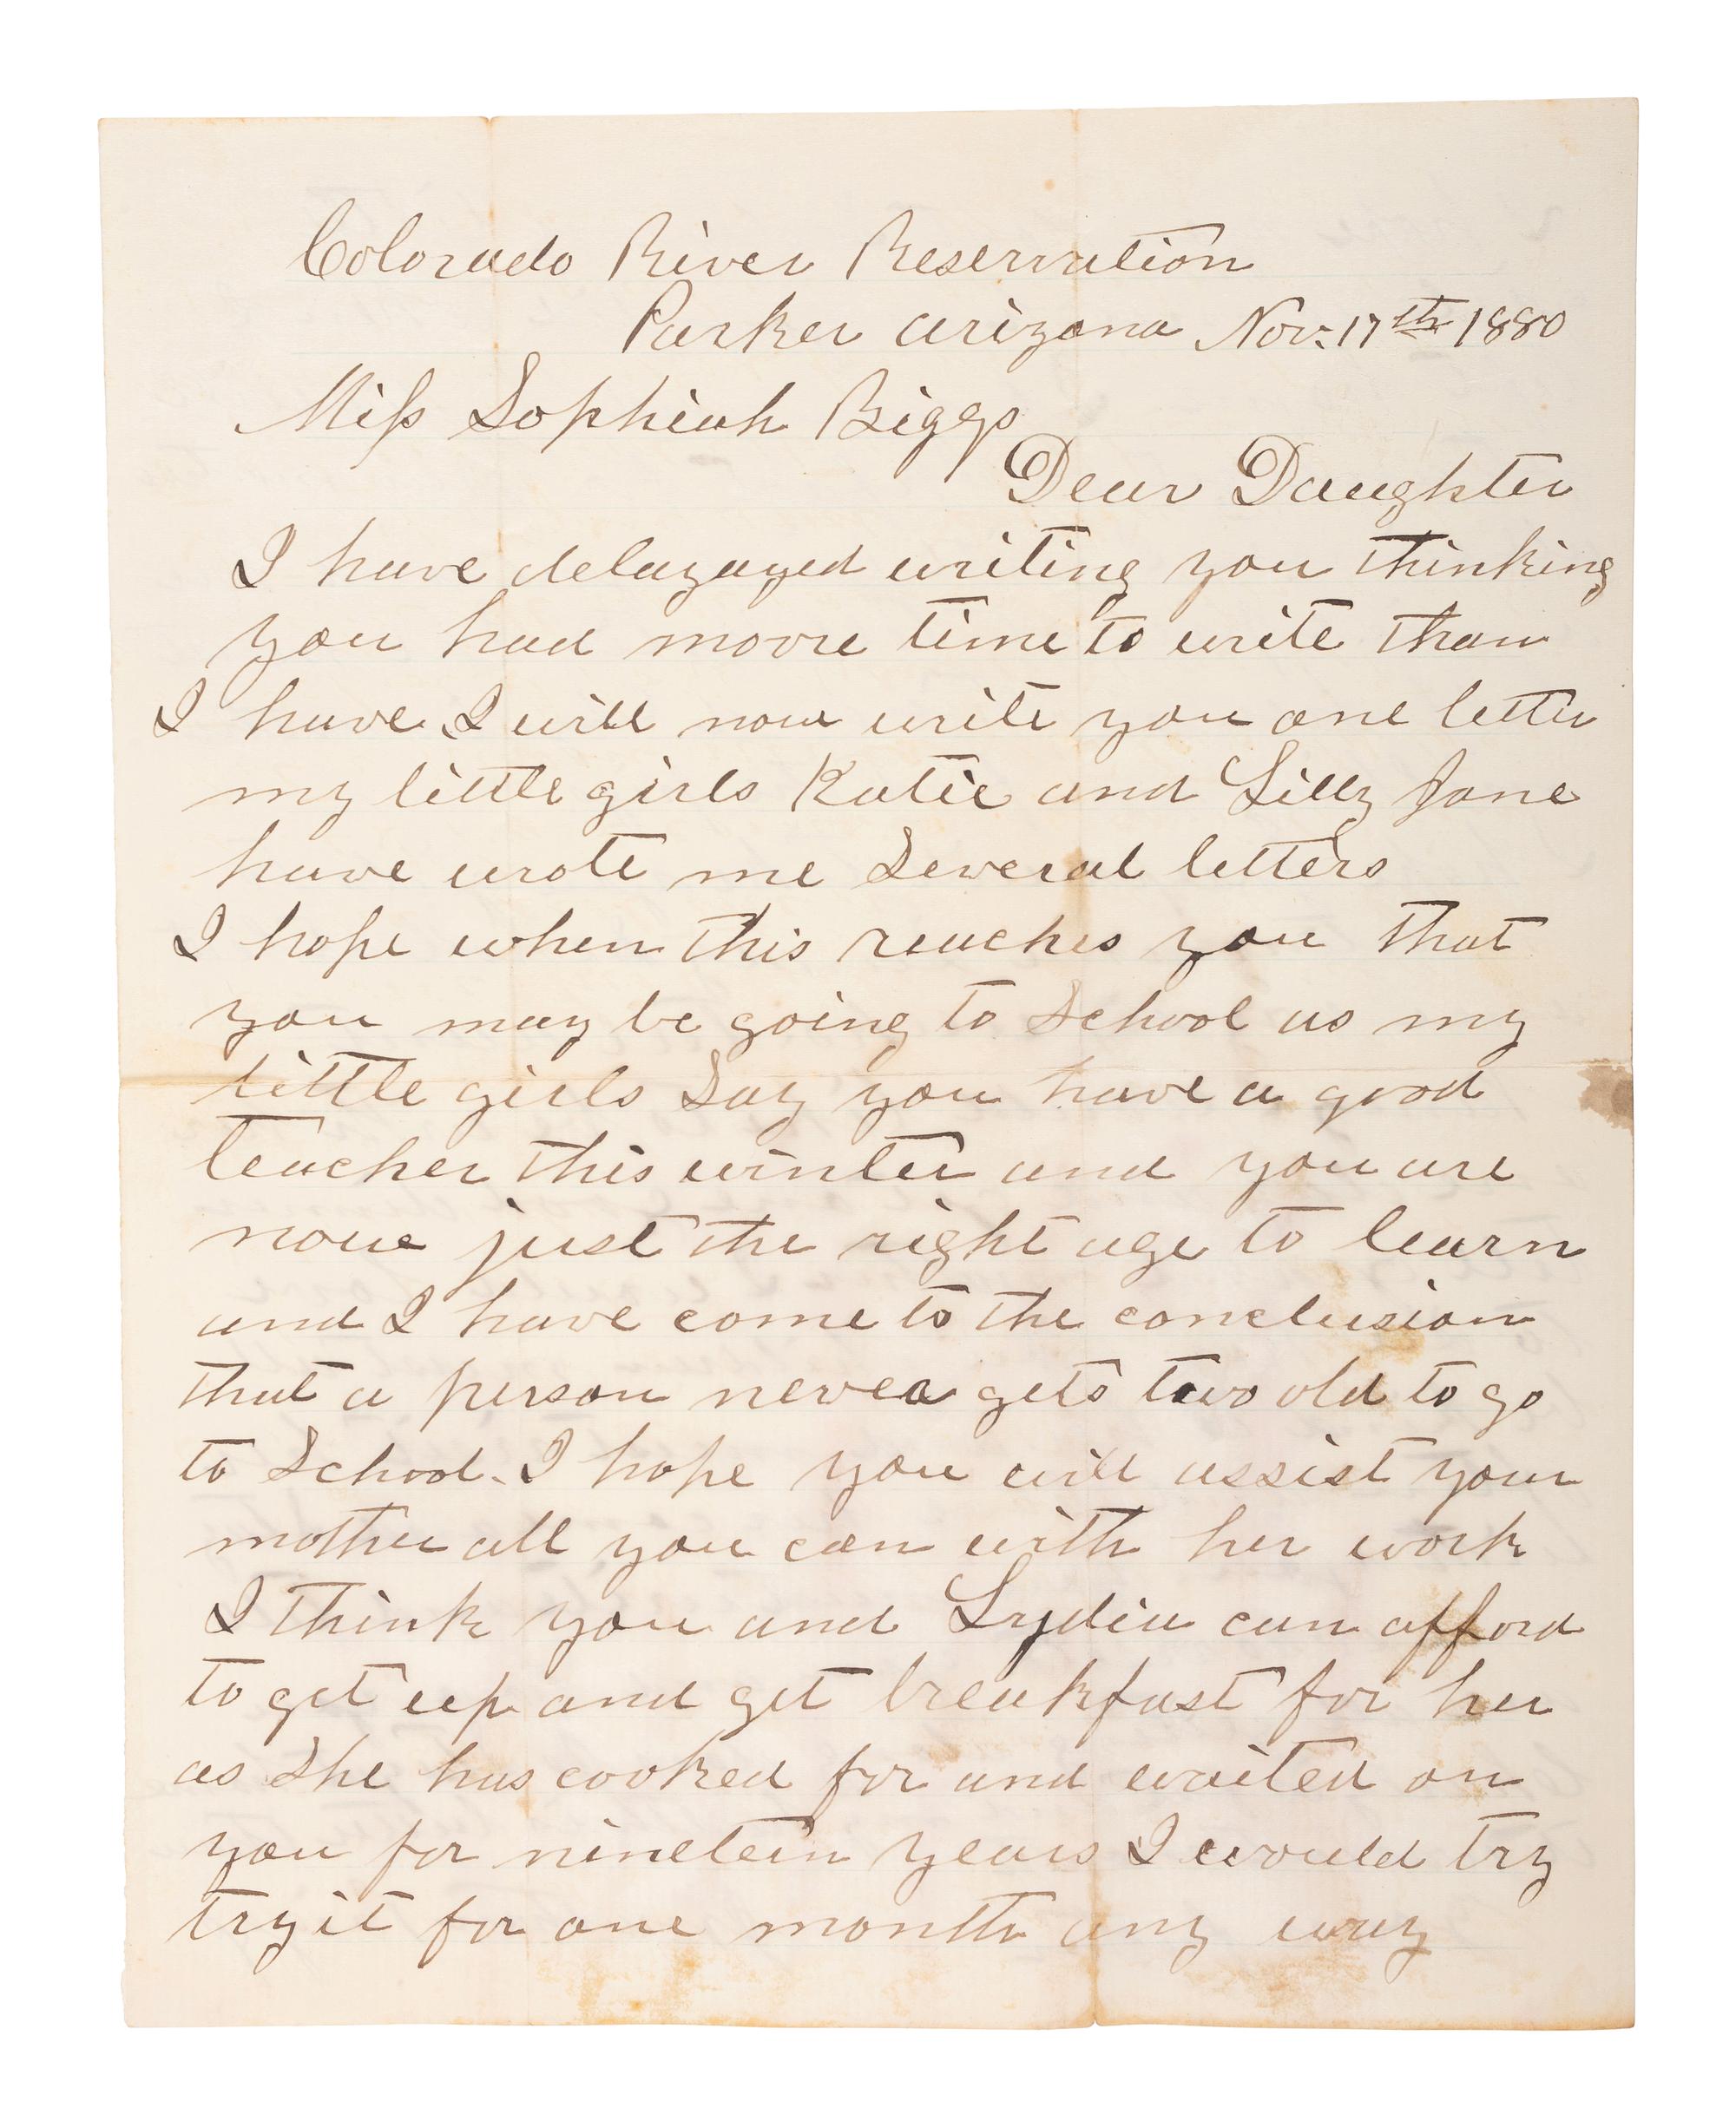 Colorado River Reservation
Parker arizona Nov: 17th 1880
Miss Sophiah Biggs
Dear Daughter
I have delayayed writing you thinking
you had moore time to write than
I have I will now write you one letter
my little girls Katie and Lilly Jane
have wrote me Several letters
I hope when this reaches you that
you may be going to School as my
little girls Say you have a good
teacher this winter and you are
now just the right age to learn
and I have come to the conclusion
that a person never gets two old to go
to School. I hope you will assist your
mother all you can with her work
I think you and Lydia can afford
to get up and get breakfast for her
as She has cooked for and waited on
you for nineteen years I would try
try it for one month any way